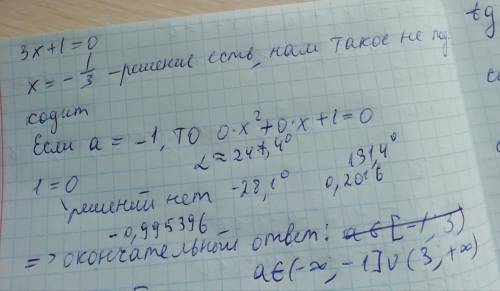 3x+1=0
x = -1/3 - решение есть, нам такое не под
ходит
Если a = -1, то 0·x²+0·x+1=0
α ≈ 247,4°
191,4°
1=0
решений нет
-28,1°
0,2016
-0,995396
=> окончательный ответ: a∈[-1, 3)
a∈(-∞, -1]∪(3, +∞)
tg